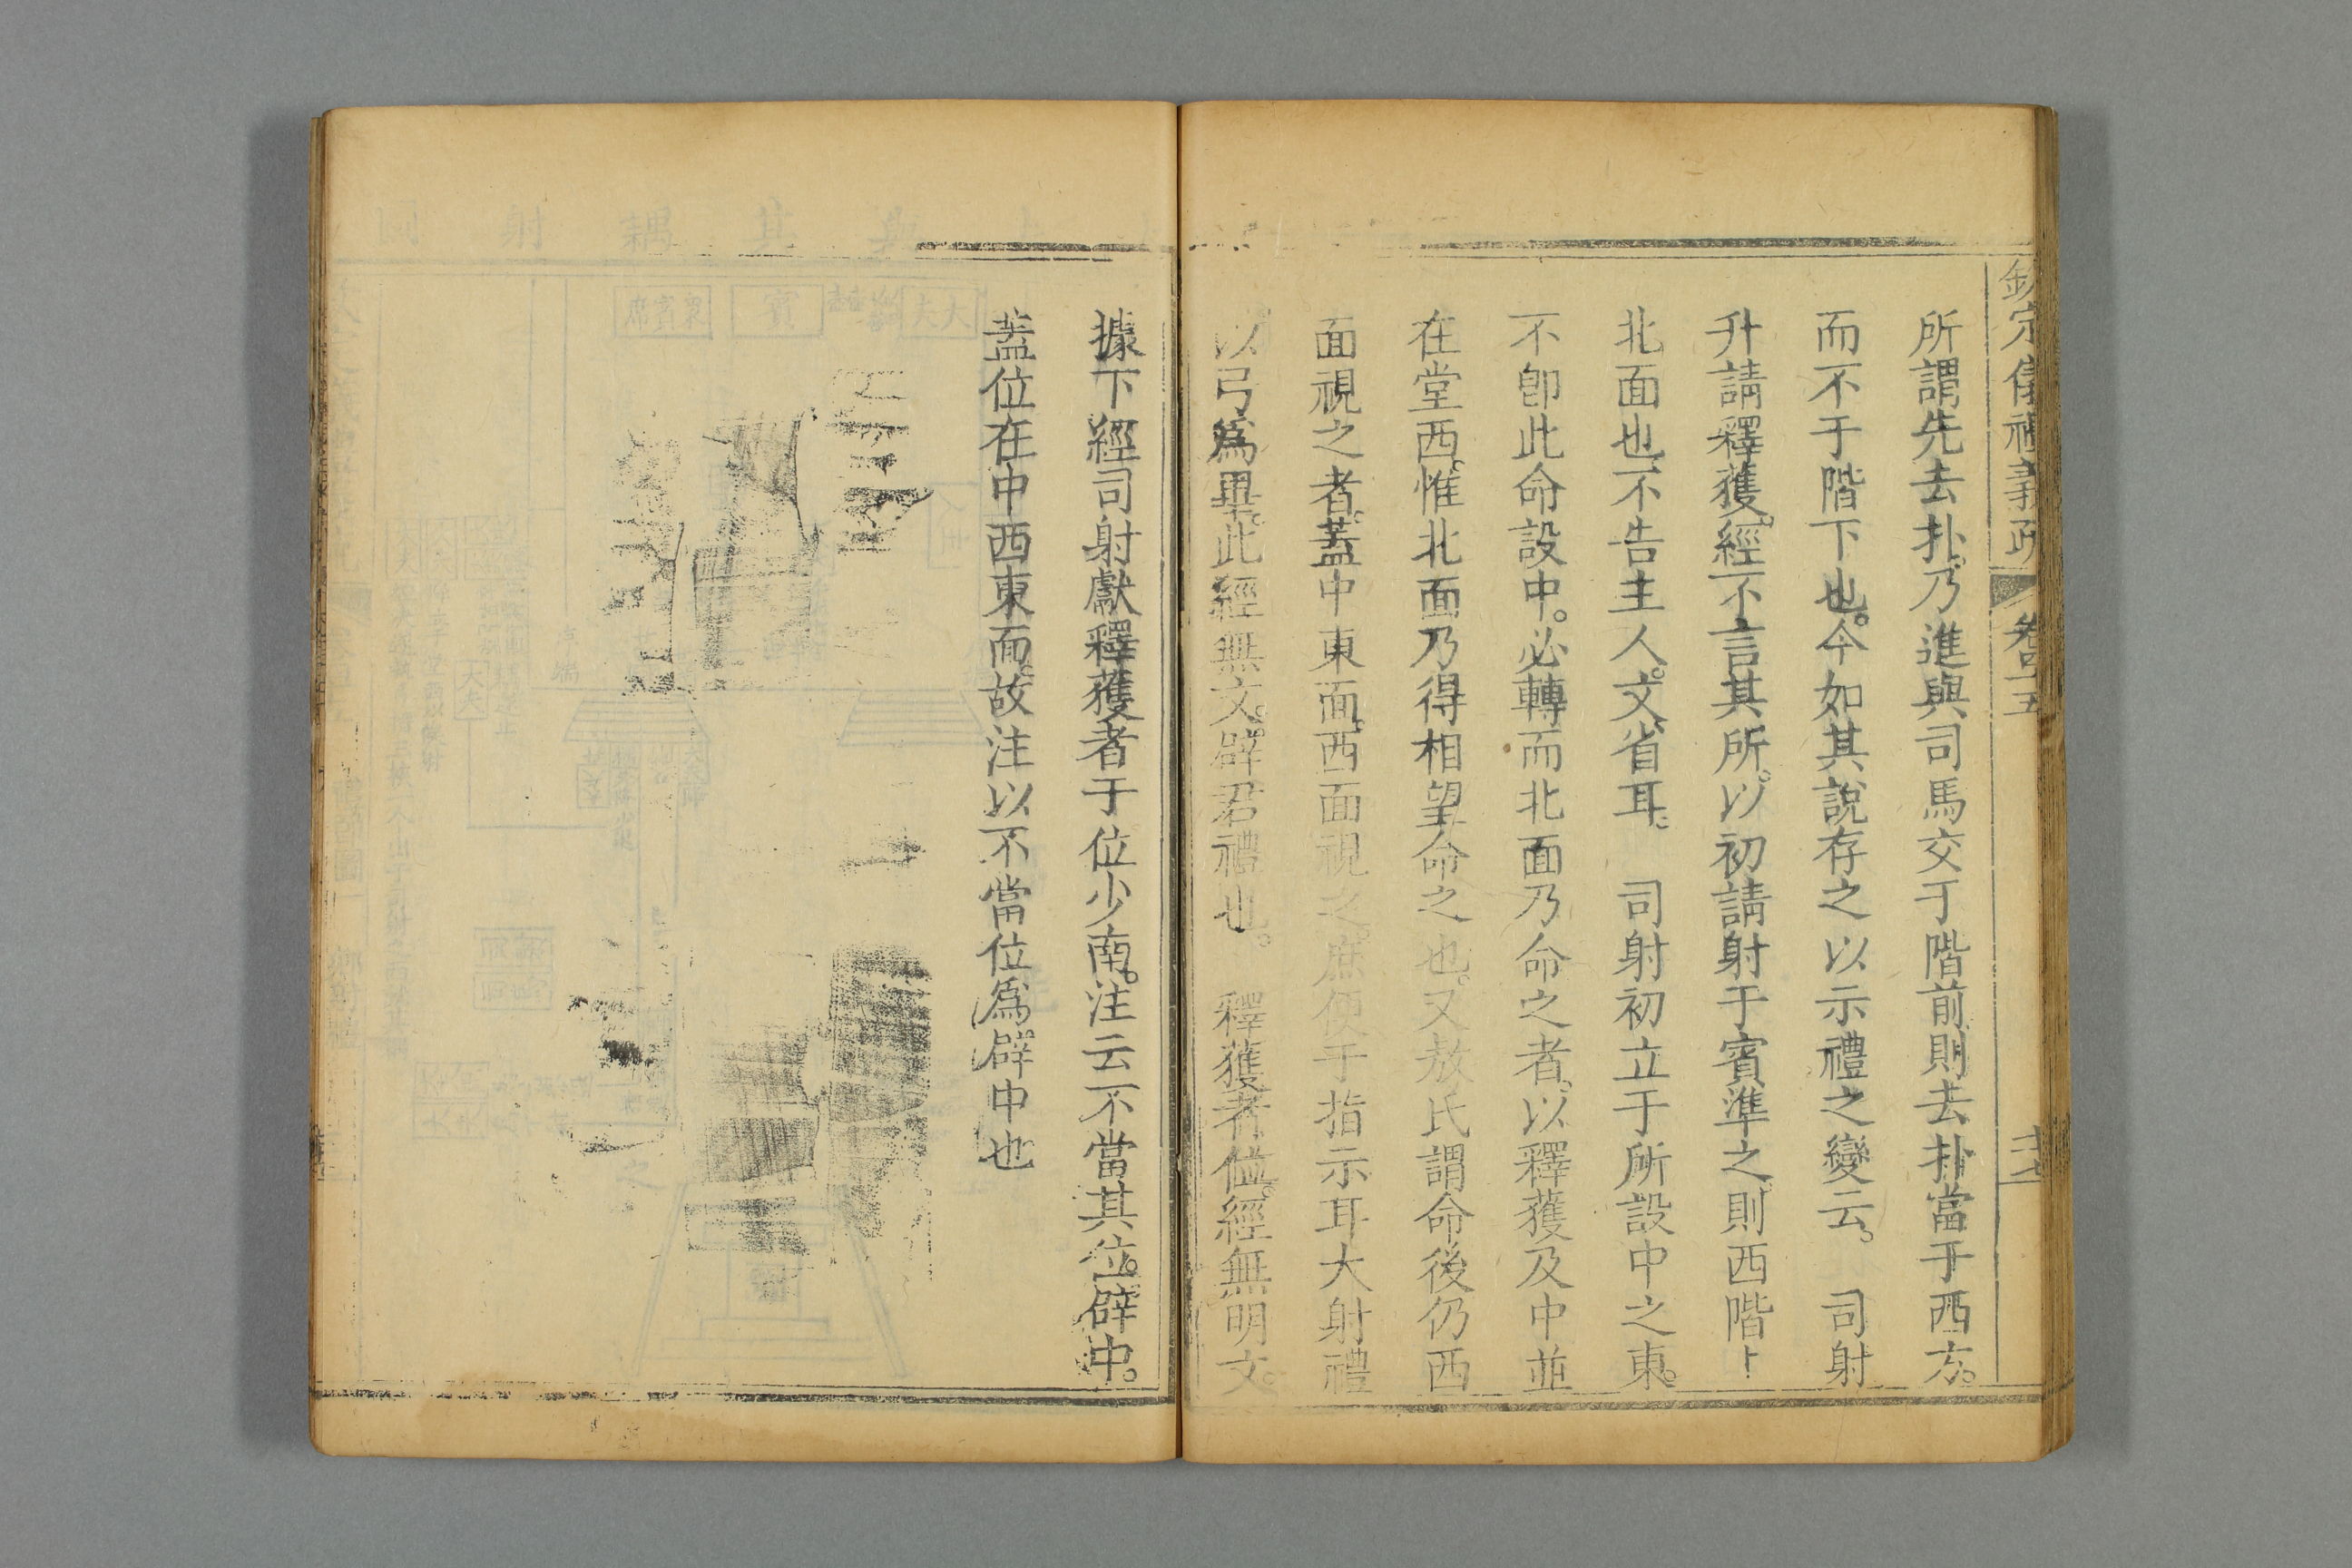 欽定儀禮義疏 卷四十五
所謂先去扑乃進與司馬交于階前則去扑當于西方。
而不于階下也。今如其說存之以示禮之變云。 司射
升請釋獲。經不言其所。以初請射于賓準之則西階上
北面也。不告主人。文省耳。 司射初立于所設中之東。
不卽此命設中。必轉而北面乃命之者。以釋獲及中並
在堂西。惟北面乃得相望命之也。又敖氏謂命後仍西
面視之者。蓋中東面。西面視之。庶便于指示耳大射禮
以弓為畢。此經無文。辟君禮也。 釋獲者位。經無明文。
據下經司射獻釋獲者于位少南。注云不當其位。辟中。
蓋位在中西東面。故注以不當位為辟中也